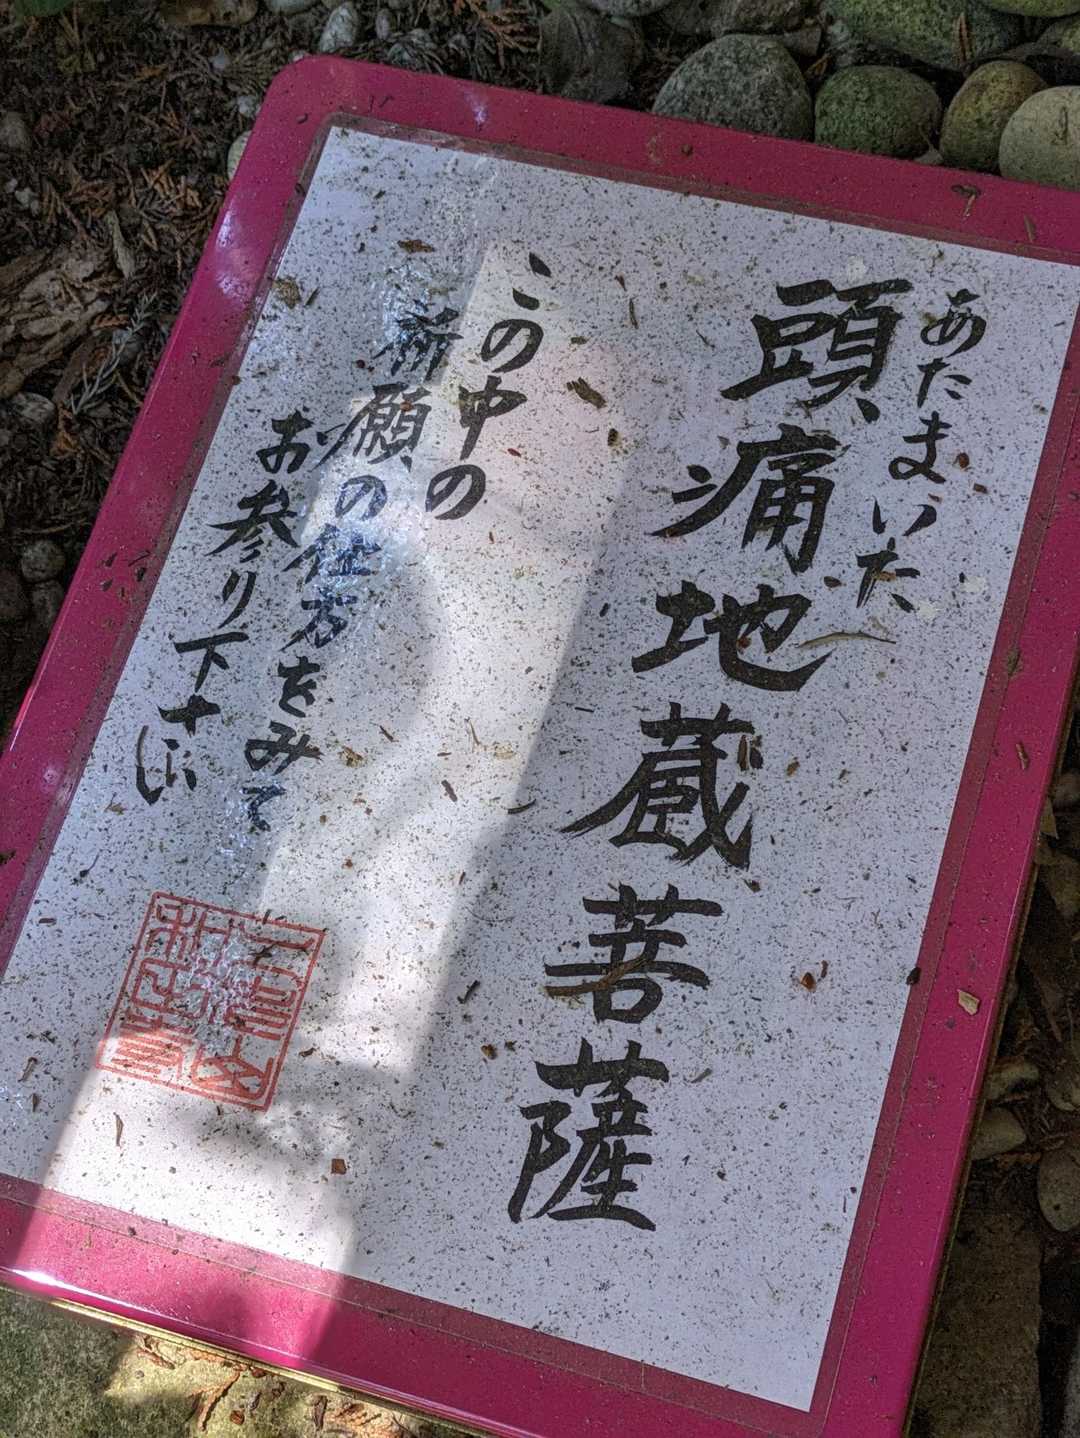 あたまいた
頭痛地蔵菩薩
この中の
祈願の仕方をみて
お参り下さい